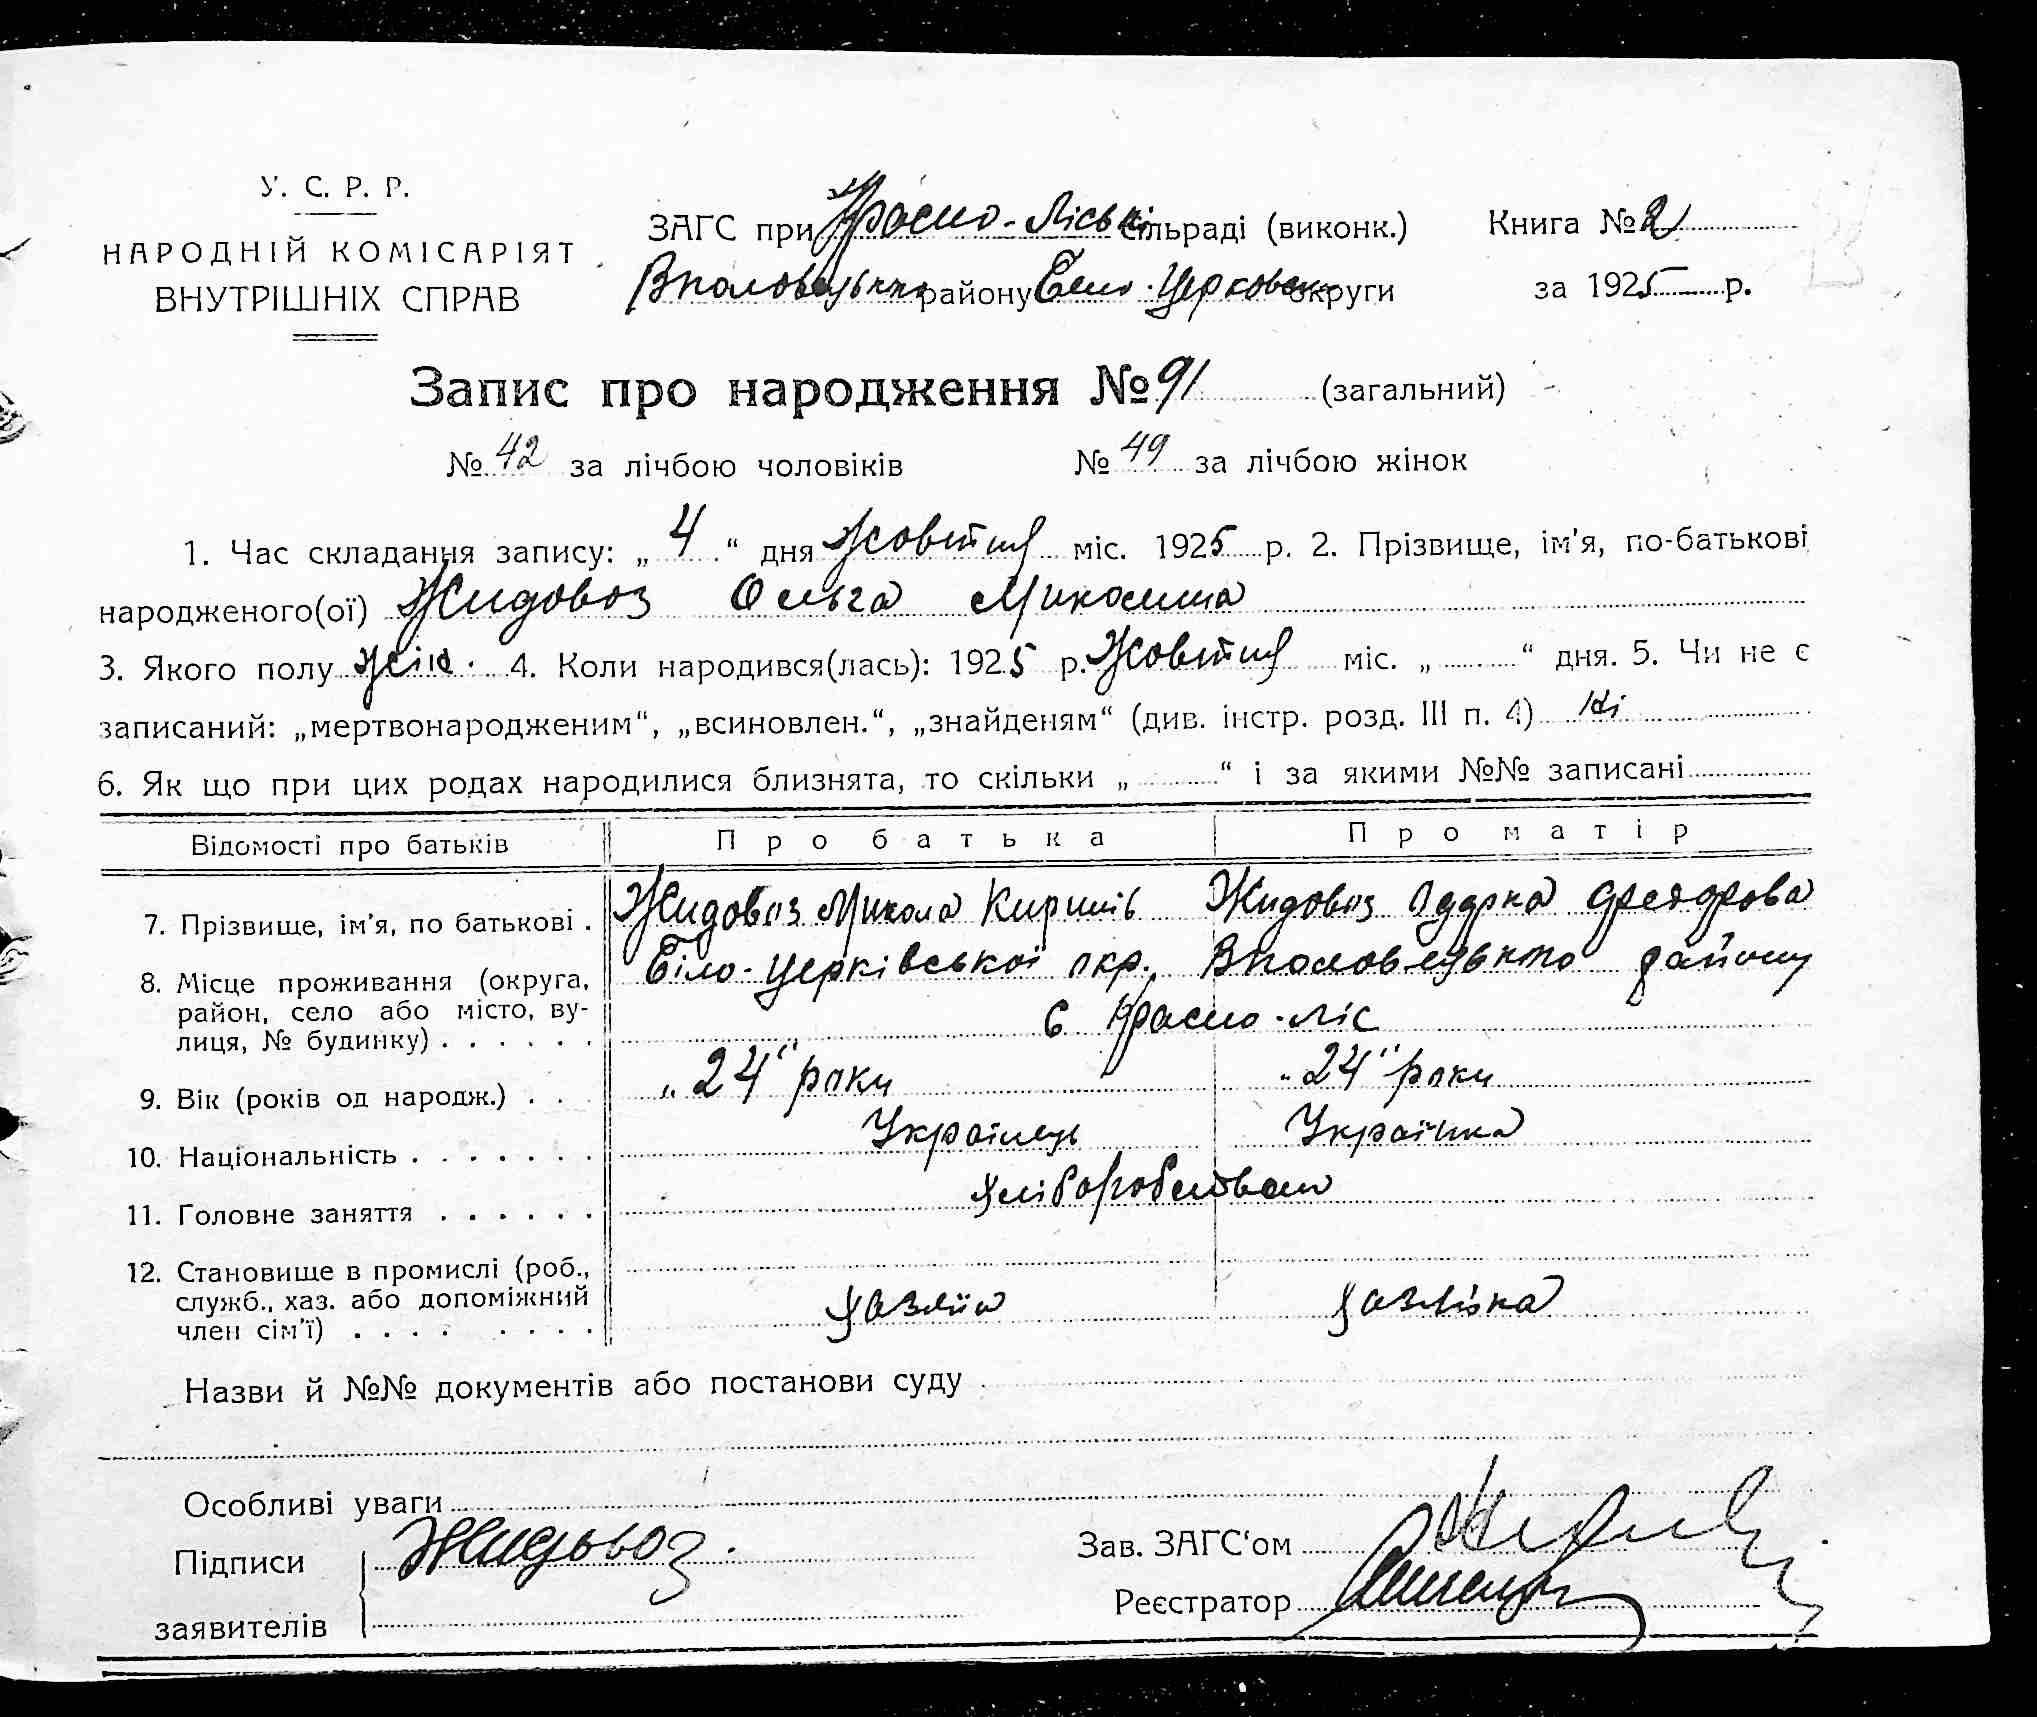 У. С. Р. Р.
НАРОДНІЙ КОМІСАРІЯТ
ВНУТРІШНІХ СПРАВ
ЗАГС при Красно-Ліські сільраді (виконк.) Книга № 2
району Біло-Церковськ округи за 1925 р.
Запис про народження № 91 (загальний)
№ 42 за лічбою чоловіків № 49 за лічбою жінок
1. Час складання запису: „ 4 “ дня Жовтня міс. 1925 р. 2. Прізвище, ім'я, по-батькові
народженого(ої) Жидовоз Ольга Миколина
3. Якого полу жін. 4. Коли народився(лась): 1925 р. Жовтня міс. „ “ дня. 5. Чи не є
записаний: „мертвонародженим“, „всиновлен.“, „знайденям“ (див. інстр. розд. III п. 4) Ні
6. Як що при цих родах народилися близнята, то скільки „ “ і за якими №№ записані
Відомості про батьків Про батька Про матір
7. Прізвище, ім'я, по батькові . Жидовоз Микола Кирилів Жидовоз Одарка Федорова
8. Місце проживання (округа, район, село або місто, вулиця, № будинку) . . . . . . Біло-Церківської окр., Вполовецького району
с Красно-ліс
9. Вік (років од народж.) . . „24“ роки „24“ роки
10. Національність . . . . . . . Українець Українка
11. Головне заняття . . . . . . Хліборобством
12. Становище в промислі (роб.,
служб., хаз. або допоміжний
член сім'ї) . . . . . . . . Хазяїн Хазяйка
Назви й №№ документів або постанови суду
Особливі уваги
Підписи Жидовоз. Зав. ЗАГС‘ом
заявителів Реєстратор